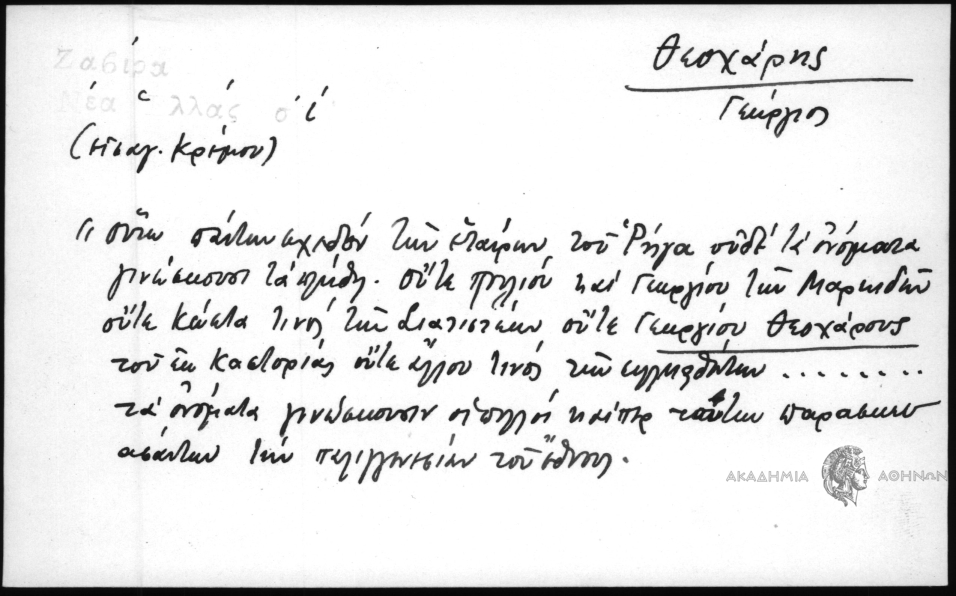 Ζαβίρα
Νέα Ἑλλάς σ. ί
(εἰσαγ. Κρέμου)
Θεοχάρης
Γεώργιος
" οὕτω πάντων σχεδόν τῶν ἑταίρων τοῦ Ῥήγα οὐδέ τά ὀνόματα
γινώσκουσι τά πλήθη. οὔτε Πουλίου καί Γεωργίου τῶν Μαρκιδῶν
οὔτε Κώστα τινός τῶν Σιατιστέων οὔτε Γεωργίου Θεοχάρους
τοῦ ἐκ Καστορίας οὔτε ἄλλου τινός τῶν συλληφθέντων ........
τά ὀνόματα γινώσκουσιν οἱ πολλοί καίπερ τούτων παρασκευ
ασάντων τήν παλιγγενεσίαν τοῦ ἔθνους.
ΑΚΑΔΗΜΙΑ ΑΘΗΝΩΝ